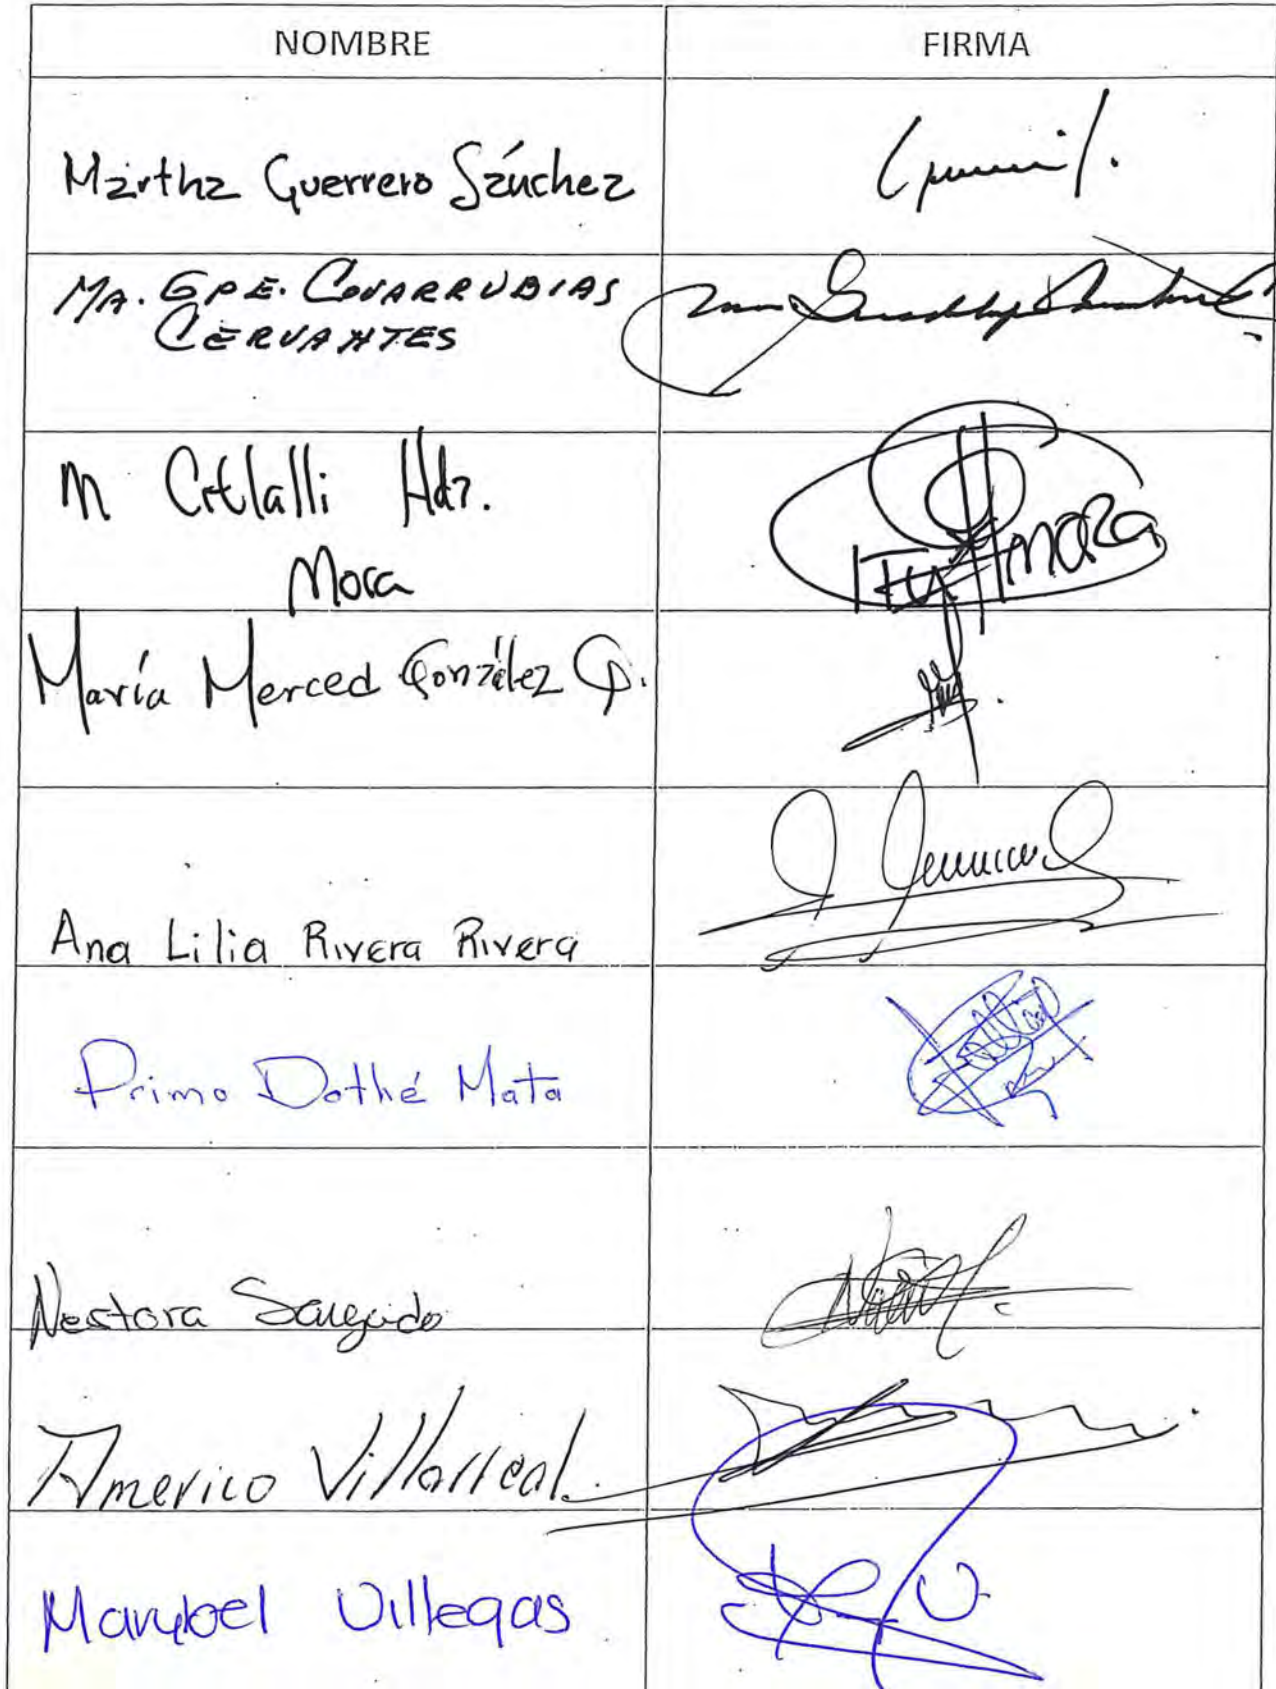 NOMBRE FIRMA
Martha Guerrero Sánchez
MA. GPE. COVARRUBIAS
CERVANTES
M Citlalli Hdz.
Mora
MORA
María Merced González G.
Ana Lilia Rivera Rivera
Primo Dothé Mata
Nestora Salgado
Americo Villarreal.
Marybel Villegas